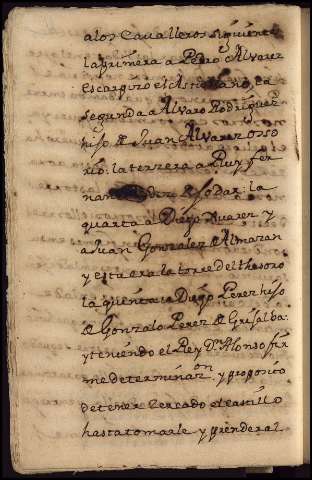 a los Cavalleros siguientes
la primera a Pedro Alvarez
el Asturiano, la
segunda a Alvaro Rodriguez
hijo de Juan Alvarez Osso
rio: la terzera a Ruy fer
nan de So Dar: la
quarta a Diego Suarez y
a Juan Gonzalez de Almazan
y esta era la torre del thesoro
la quinta a Diego Perez hijo
de Gonzalo Perez de Grisalba:
y teniendo el Rey Dn Alonso fir
me determinazon y proposito
de tener cercado el castillo
hasta tomarle y prender al